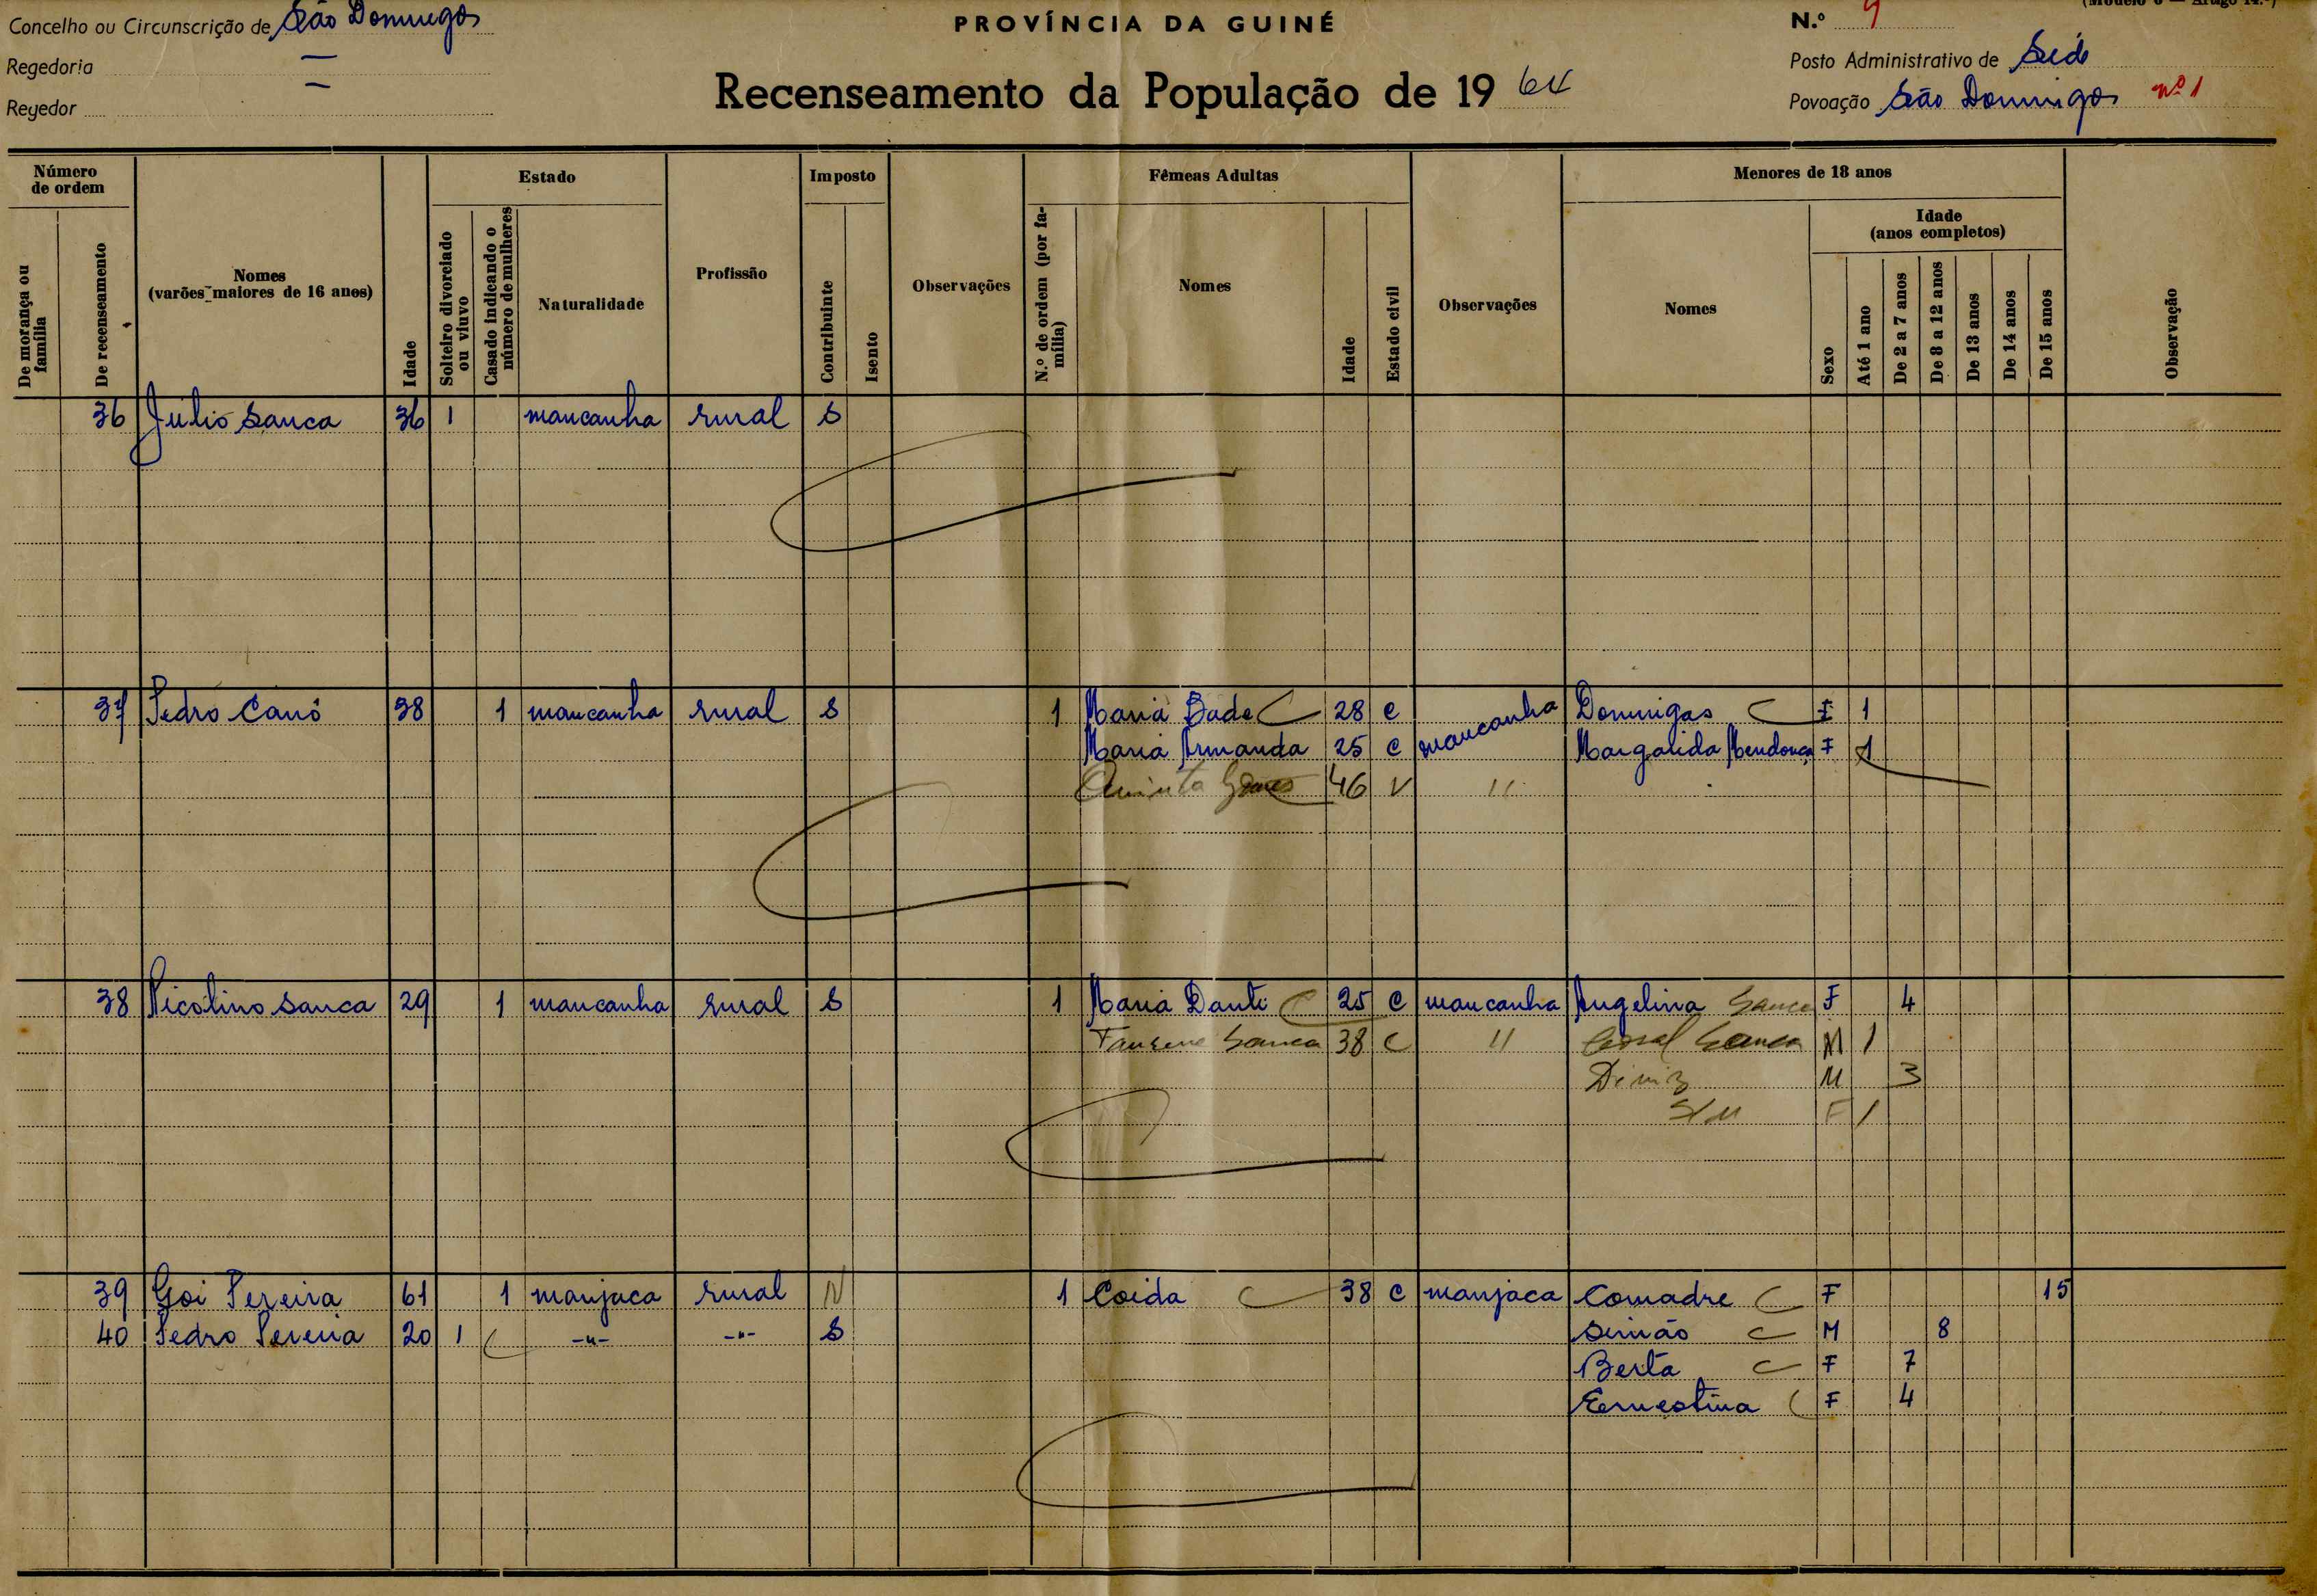 Concelho ou Circunscrição de São Domingos
PROVÍNCIA DA GUINÉ
N.º 9
Regedoria —
Posto Administrativo de Sede
Regedor —
Recenseamento da População de 19 64
Povoação São Domingos nº 1
Número de ordem
De morança ou família
De recenseamento
Nomes
(varões maiores de 16 anos)
Idade
Estado
Solteiro divorciado ou viuvo
Casado indicando o número de mulheres
Naturalidade
Profissão
Imposto
Contribuinte
Isento
Observações
Fêmeas Adultas
N.º de ordem (por família)
Nomes
Idade
Estado civil
Observações
Menores de 18 anos
Nomes
Idade
(anos completos)
Sexo
Até 1 ano
De 2 a 7 anos
De 8 a 12 anos
De 13 anos
De 14 anos
De 15 anos
Observação
36 Júlio Sanca 36 1 mancanha rural S
37 Pedro Canó 38 1 mancanha rural S 1 Maria Bade 28 C mancanha Domingas F 1
Maria Armanda 25 C Margarida Mendonça F 1
Quinta Gomes 46 V "
38 Nicolino Sanca 29 1 mancanha rural S 1 Maria Danti 25 C mancanha Angelina Sanca F 4
Sanca 38 C " Sanca M 1
Diniz M 3
S/N F 1
39 Goi Pereira 61 1 manjaca rural N 1 Coida 38 C manjaca Comadre F 15
40 Pedro Pereira 20 1 -"- -"- S Simão M 8
Berta F 7
Ernestina F 4